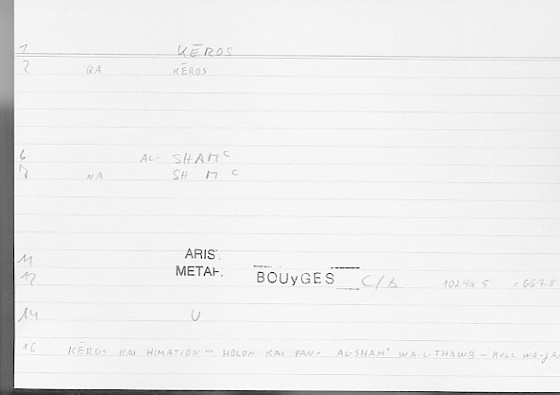 1 KĒROS
2 QA KĒROS
6 AL- SHAMC
7 NA SH M C
11 ARIS.
12 METAF. BOUyGES C/b 1024a 5 = 667.8
14 U
16 KĒROS KAI HIMATION HOLON KAI PAN. AL-SHAMC WA-L-THAWB - KULL WA-JA